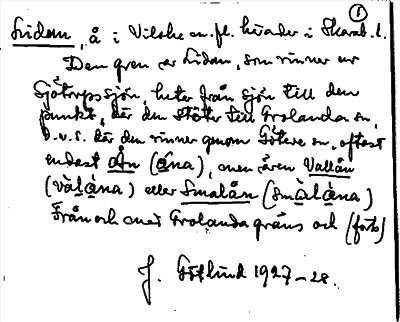 ①
Lidan, å i Vilske m. fl. härader i Skarab. l.
Den gren av Lidan, som rinner ur
Sjötorpssjön, heter från sjön till den
punkt, där den stöter till Grolanda sn,
d.v.s. där den rinner genom Göteve sn, oftast
endast Ån (åna), men även Vallån
(vàlåna) eller Smalån (smàlåna)
Från och med Grolanda gräns och (forts)
J. Götlind 1927-28.